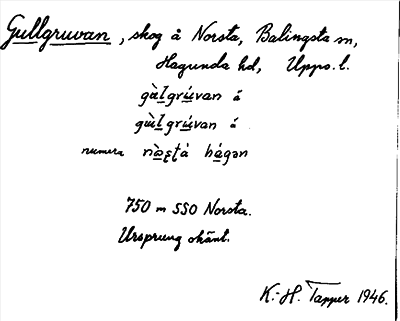 Gullgruvan, skog å Norsta, Balingsta sn,
Hagunda hd, Upps. l.
gùlgrúvan á
gùlgrúvan á
numera hágən
750 m SSO Norsta.
Ursprung okänt.
K.-H. Tapper 1946.